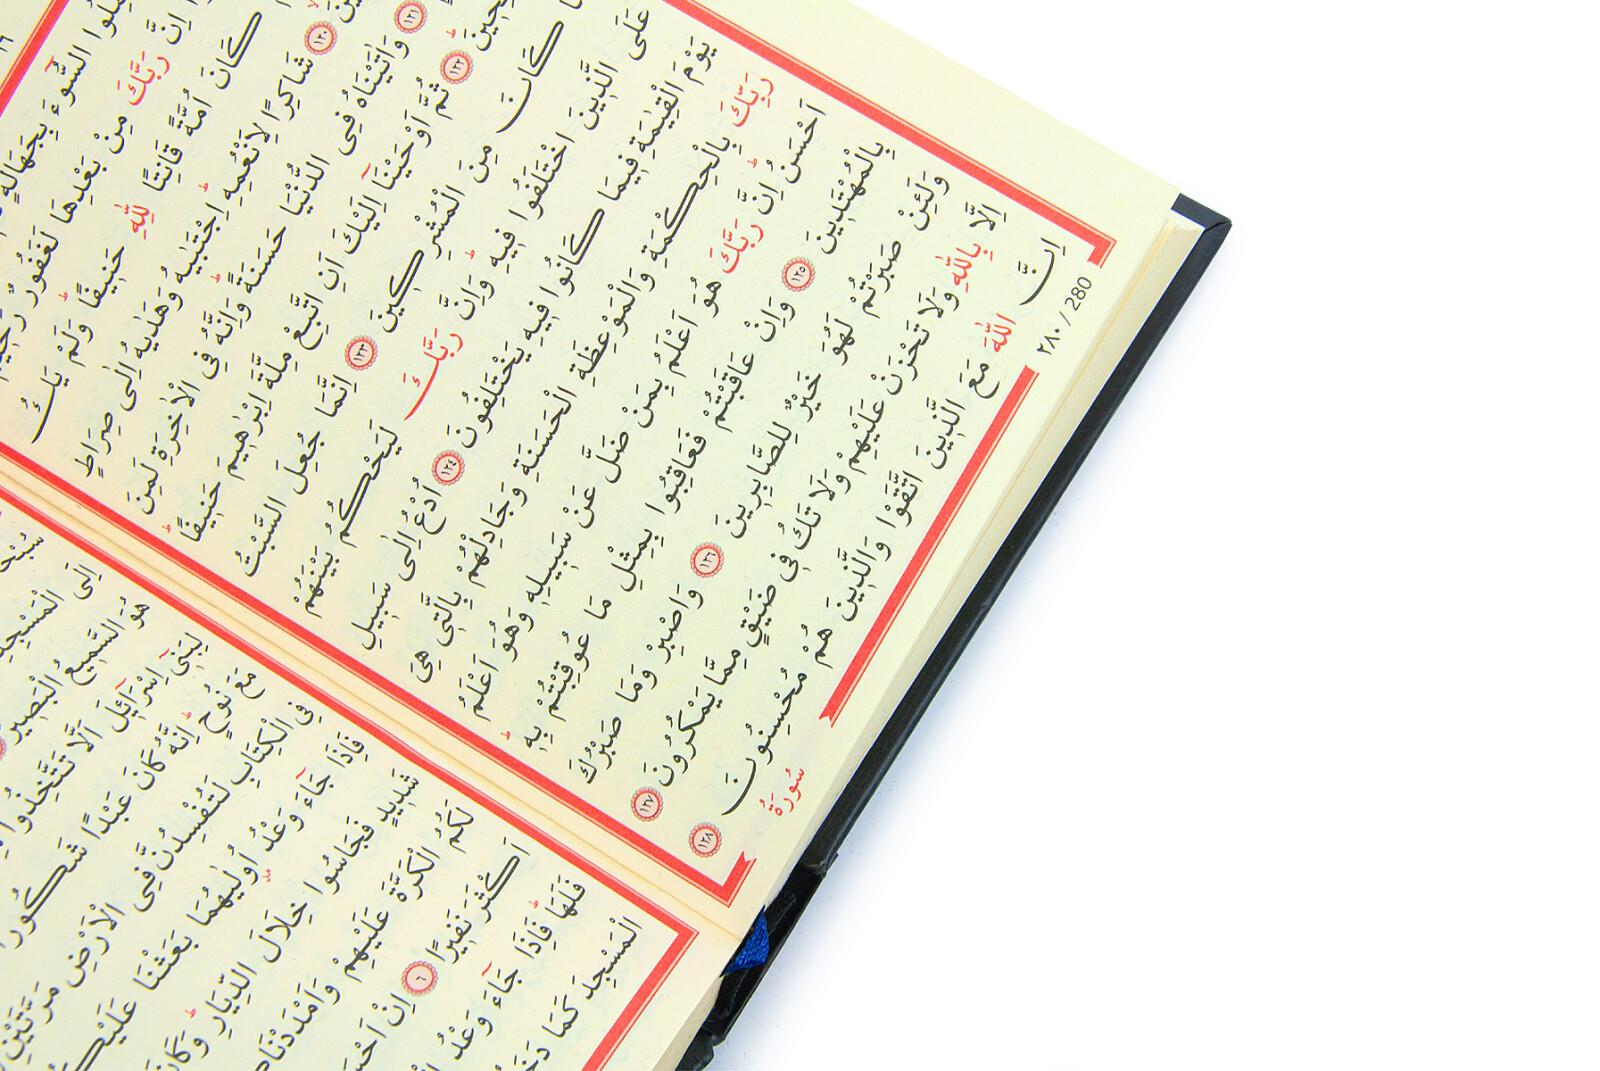 السُّٓوءَ بِجَهَالَةٍ
اِنَّ رَبَّكَ مِنْ بَعْدِهَا لَغَفُورٌ
كَانَ اُمَّةً قَانِتًا لِلّٰهِ حَنٖيفًاۜ وَلَمْ يَكُ
﴿١٢٠﴾ شَاكِرًا لِاَنْعُمِهٖۜ اِجْتَبٰيهُ وَهَدٰيهُ اِلٰى صِرَاطٍ
﴿١٢١﴾ وَاٰتَيْنَاهُ فِي الدُّنْيَا حَسَنَةًۜ وَاِنَّهُ فِي الْاٰخِرَةِ لَمِنَ
﴿١٢٢﴾ ثُمَّ اَوْحَيْنَٓا اِلَيْكَ اَنِ اتَّبِعْ مِلَّةَ اِبْرٰهٖيمَ حَنٖيفًاۜ
كَانَ مِنَ الْمُشْرِكٖينَ ﴿١٢٣﴾ اِنَّمَا جُعِلَ السَّبْتُ
عَلَى الَّذٖينَ اخْتَلَفُوا فٖيهِۜ وَاِنَّ رَبَّكَ لَيَحْكُمُ بَيْنَهُمْ
يَوْمَ الْقِيٰمَةِ فٖيمَا كَانُوا فٖيهِ يَخْتَلِفُونَ ﴿١٢٤﴾ اُدْعُ اِلٰى سَبٖيلِ
رَبِّكَ بِالْحِكْمَةِ وَالْمَوْعِظَةِ الْحَسَنَةِ وَجَادِلْهُمْ بِالَّتٖي هِيَ
اَحْسَنُۜ اِنَّ رَبَّكَ هُوَ اَعْلَمُ بِمَنْ ضَلَّ عَنْ سَبٖيلِهٖ وَهُوَ اَعْلَمُ
بِالْمُهْتَدٖينَ ﴿١٢٥﴾ وَاِنْ عَاقَبْتُمْ فَعَاقِبُوا بِمِثْلِ مَا عُوقِبْتُمْ بِهٖۜ
وَلَئِنْ صَبَرْتُمْ لَهُوَ خَيْرٌ لِلصَّابِرٖينَ ﴿١٢٦﴾ وَاصْبِرْ وَمَا صَبْرُكَ
اِلَّا بِاللّٰهِ وَلَا تَحْزَنْ عَلَيْهِمْ وَلَا تَكُ فٖي ضَيْقٍ مِمَّا يَمْكُرُونَ ﴿١٢٧﴾
اِنَّ اللّٰهَ مَعَ الَّذٖينَ اتَّقَوْا وَالَّذٖينَ هُمْ مُحْسِنُونَ ﴿١٢٨﴾
٢٨٠ / 280
سُورَةُ
اِلَى الْمَسْجِدِ
هُوَ السَّمٖيعُ الْبَصٖيرُ
لِبَنٖٓي اِسْرَٓائٖلَ اَلَّا تَتَّخِذُوا
مَعَ نُوحٍۜ اِنَّهُ كَانَ عَبْدًا شَكُورًا
فِي الْكِتَابِ لَتُفْسِدُنَّ فِي الْاَرْضِ مَرَّتَيْنِ
فَاِذَا جَٓاءَ وَعْدُ اُو۫لٰيهُمَا بَعَثْنَا
شَدٖيدٍ فَجَاسُوا خِلَالَ الدِّيَارِۜ
لَكُمُ الْكَرَّةَ عَلَيْهِمْ
اَكْثَرَ نَفٖيرًا ﴿٦﴾ اِنْ
فَلَهَاۜ فَاِذَا جَٓاءَ وَعْدُ
الْمَسْجِدَ كَمَا